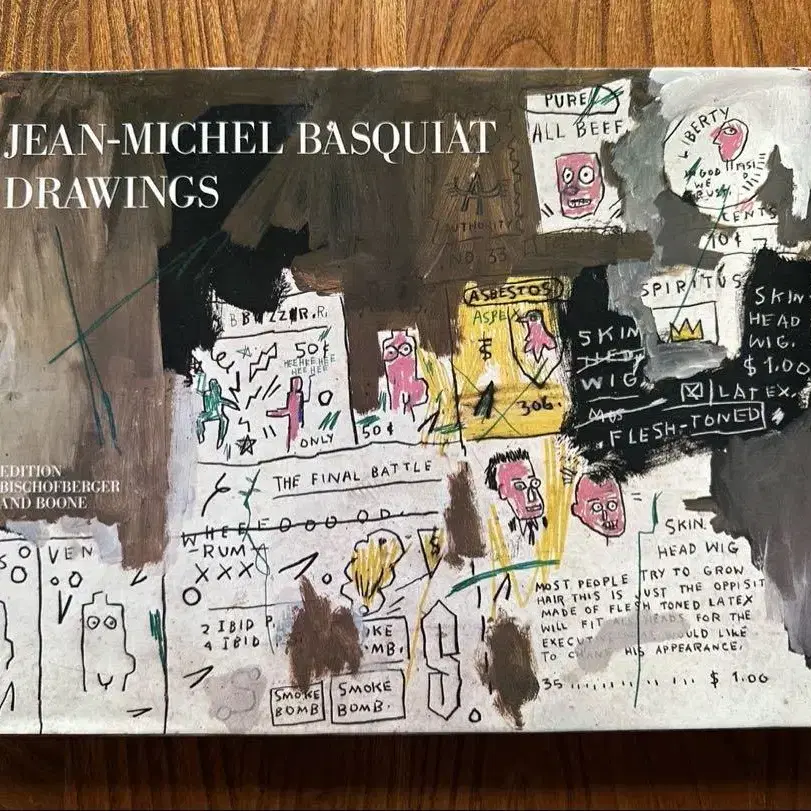 JEAN-MICHEL BASQUIAT
DRAWINGS
EDITION
BISCHOFBERGER
AND BOONE
PURE
ALL BEEF
AUTHORITY
NO 33
LIBERTY
GOD
WE
TRUST
CENTS
10¢
SPIRITUS
ASBESTOS
306.
50¢
HEE HEE HEE
HEE HEE
ONLY
50¢
SKIN
WIG
SKIN
HEAD
WIG.
$ 1.00
LATEX.
FLESH-TONED
THE FINAL BATTLE
-RUM
XXX
2 IBID P.
4 IBID
VEN
SMOKE
BOMB
SMOKE
BOMB.
SKIN
HEAD WIG
MOST PEOPLE TRY TO GROW
HAIR THIS IS JUST THE OPPISIT
MADE OF FLESH TONED LATEX
WILL FIT ALL HEADS FOR THE
TO HIS APPEARANCE.
35 $ 1.00